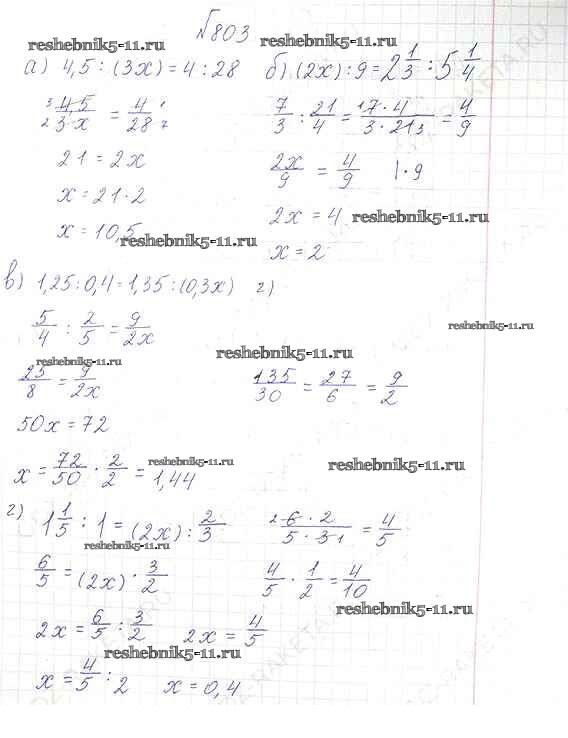 №803
reshebnik5-11.ru reshebnik5-11.ru
а) 4,5 : (3x) = 4 : 28 б) (2x) : 9 = 2 1/3 : 5 1/4
3 4,5 / 2 3·x = 4/28 1 7
7/3 : 21/4 = 17·4 / 3·21 3 = 4/9
21 = 2x
2x/9 = 4/9 |·9
x = 21·2
2x = 4 reshebnik5-11.ru
x = 10,5 reshebnik5-11.ru
x = 2
в) 1,25 : 0,4 = 1,35 : (0,3x) г)
5/4 : 2/5 = 9/2x
reshebnik5-11.ru
reshebnik5-11.ru reshebnik5-11.ru
25/8 = 9/2x
135/30 = 27/6 = 9/2
50x = 72
x = 72/50 · 2/2 = 1,44
reshebnik5-11.ru reshebnik5-11.ru
г) 1 1/5 : 1 = (2x) : 2/3
2 6·2 / 5·3 1 = 4/5
reshebnik5-11.ru
6/5 = (2x) · 3/2
4/5 · 1/2 = 4/10
reshebnik5-11.ru
2x = 6/5 : 3/2 2x = 4/5
reshebnik5-11.ru
x = 4/5 : 2 x = 0,4